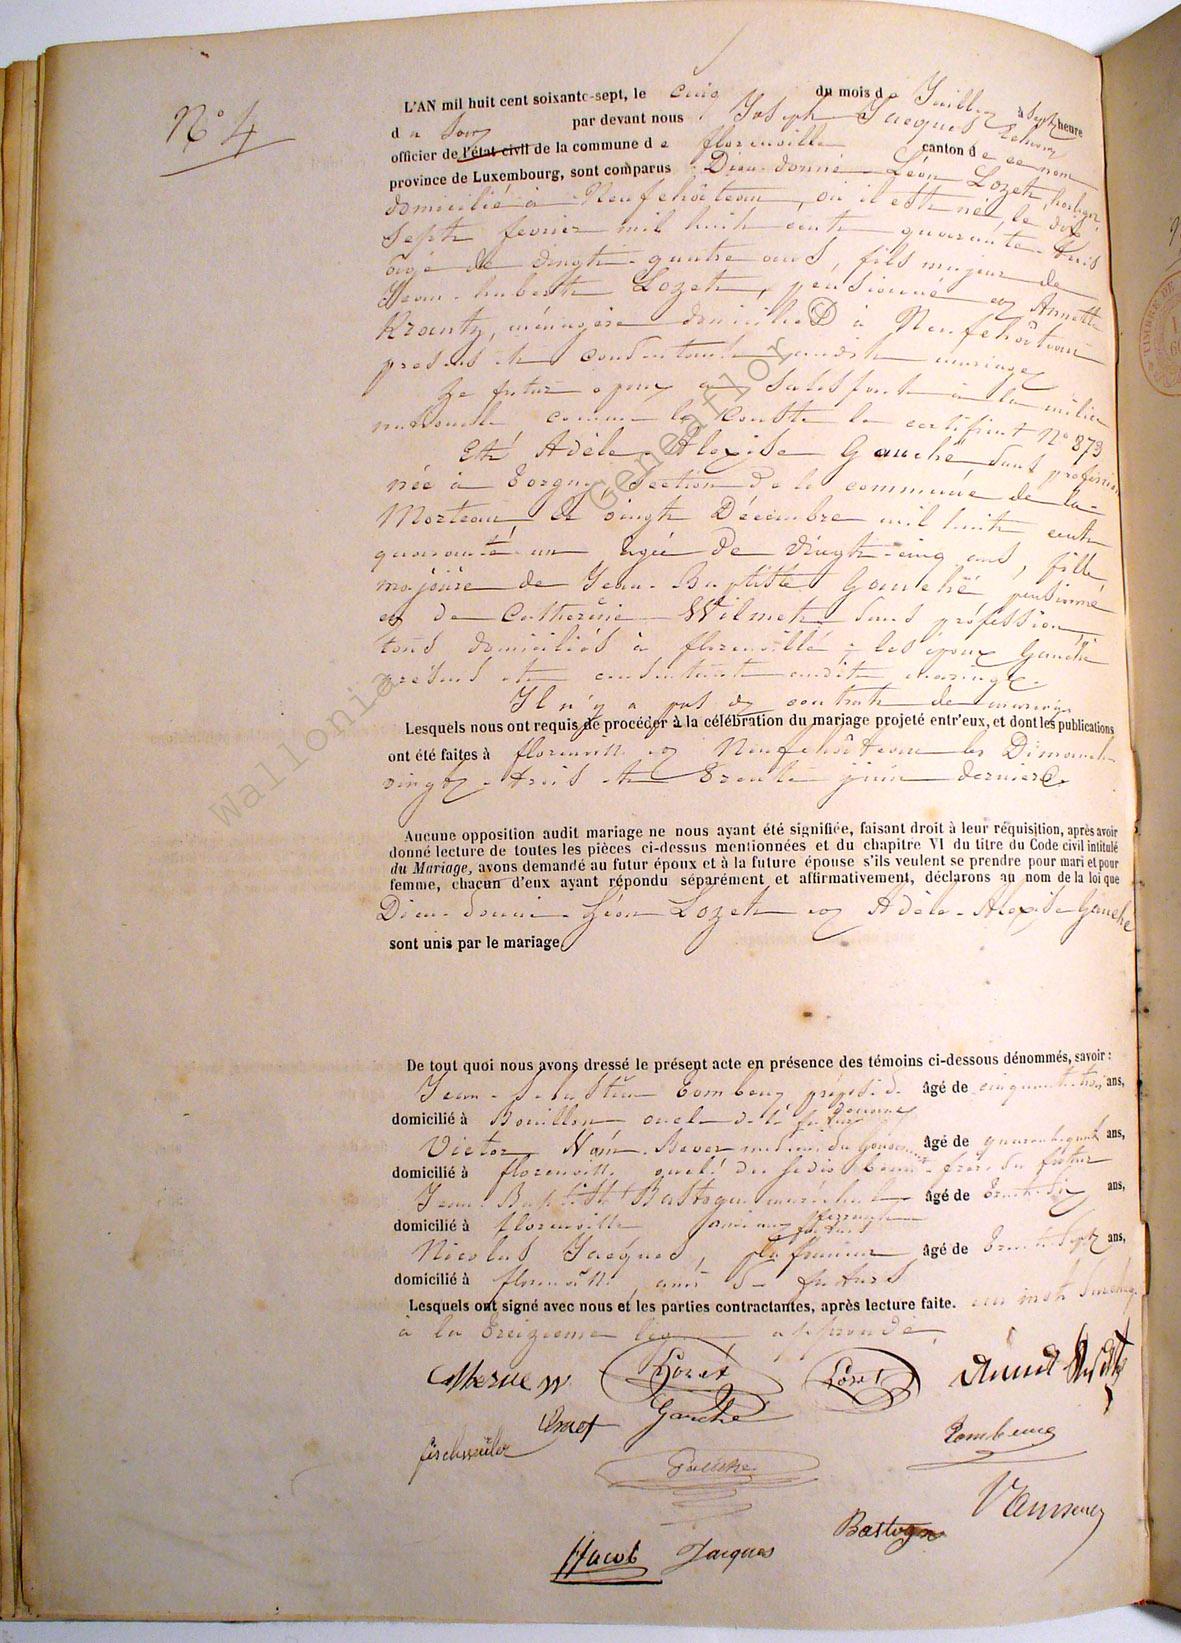 N° 4
L'AN mil huit cent soixante-sept, le cinq du mois de Juillet à sept heure
du soir par devant nous Joseph Jacques Echevin
officier de l'état civil de la commune de florenville canton de ce nom
province de Luxembourg, sont comparus Dieu-donné Léon Lozet, horloger
domicilié à Neufchâteau, où il est né, le dix
sept fevrier mil huit cent quarante-trois
âgé de vingt-quatre ans, fils majeur de
Jean-hubert Lozet, pensionné et Annette
Krantz, ménagère domiciliés à Neufchâteau
présents et consentants audit mariage
Le futur époux a satisfait à la milice
nationale comme le constate le certificat N° 873
Et Adèle-Alexise Gauché sans profession
née à Torgny, section de la commune de la-
Morteau le vingt Décembre mil huit cent
quarante-un âgée de vingt-cinq ans, fille
majeure de Jean-Baptiste Gauché pensionné
et de Catherine Wilmet sans profession
tous domiciliés à florenville ; les époux Gauché
présents et consentants audit mariage.
Il n'y a pas de contrat de mariage
Lesquels nous ont requis de procéder à la célébration du mariage projeté entr'eux, et dont les publications
ont été faites à florenville et Neufchâteau les Dimanche
vingt-trois et trente juin dernier.
Aucune opposition audit mariage ne nous ayant été signifiée, faisant droit à leur réquisition, après avoir
donné lecture de toutes les pièces ci-dessus mentionnées et du chapitre VI du titre du Code civil intitulé
du Mariage, avons demandé au futur époux et à la future épouse s'ils veulent se prendre pour mari et pour
femme, chacun d'eux ayant répondu séparément et affirmativement, déclarons au nom de la loi que
Dieu-donné-Léon Lozet et Adèle-Alexise Gauché
sont unis par le mariage
De tout quoi nous avons dressé le présent acte en présence des témoins ci-dessous dénommés, savoir :
Jean-Sébastien Tombeux, préposé de âgé de cinquante-trois ans,
douanes
domicilié à Bouillon oncle de la future
Victor âgé de ans,
domicilié à florenville beau-frère du futur
Jean-Baptiste Bastogne maréchal âgé de trente-six ans,
ferrant
domicilié à florenville ami aux futurs
Nicolas Jacques, plafonneur âgé de trente-sept ans,
domicilié à florenville, ami des futurs
Lesquels ont signé avec nous et les parties contractantes, après lecture faite. un mot surchargé
à la treizième ligne approuvé.
Lozet Lozet
Gauché
Tombeux
fischweiler
Gauché
Bastogne
Jacob Jacques
Wallonia Geneaflor ©